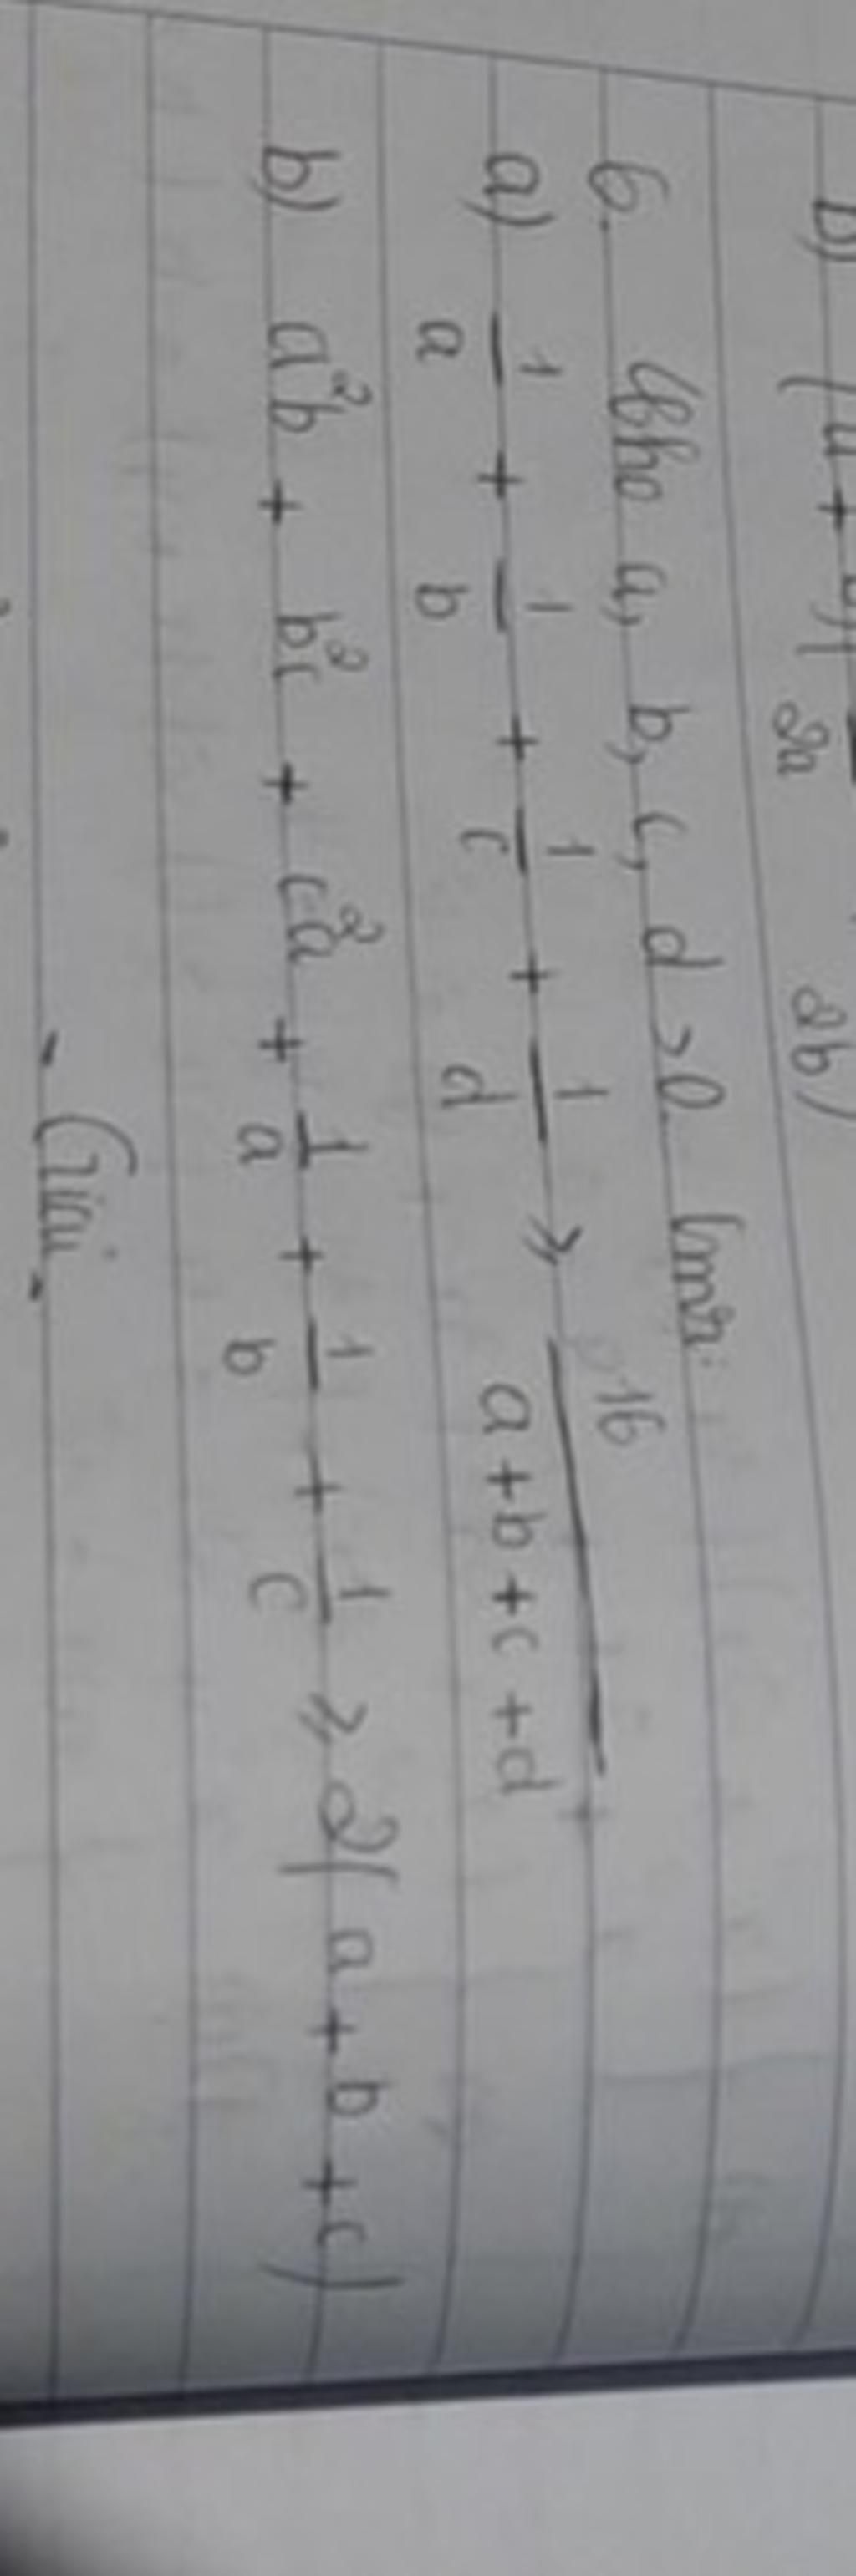 b) (a + b) ( 1/2a 1/2b )
6. Cho a, b, c, d > 0 Cmr:
a) 1/a + 1/b + 1/c + 1/d ≥ 16/(a + b + c + d)
b) a²b + b²c + c²a + 1/a + 1/b + 1/c ≥ 2(a + b + c)
- Giải -